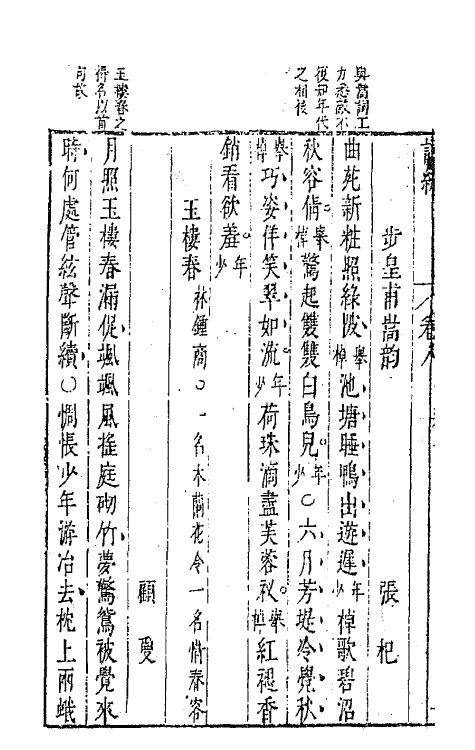 與嵩詞工
力悉敵不
復知年代
之相後
玉樓春之
得名以首
句故
詞綜
卷八
步皇甫嵩韵
張杞
曲苑新粧照綠陂 舉棹 池塘睡鴨出遊遲 年少 棹歌碧沼
秋容倩 舉棹 驚起雙雙白鳥兒 年少 ○六月芳堤冷覺秋
舉棹 巧姿佯笑翠如流 年少 荷珠滴盡芙蓉衩 舉棹 紅褪香
銷看欲羞 年少
玉樓春 林鍾商○一名木蘭花令一名惜春容
顧敻
月照玉樓春漏促颯颯風搖庭砌竹夢驚鴛被覺來
時何處管絃聲斷續○惆悵少年游冶去枕上兩蛾